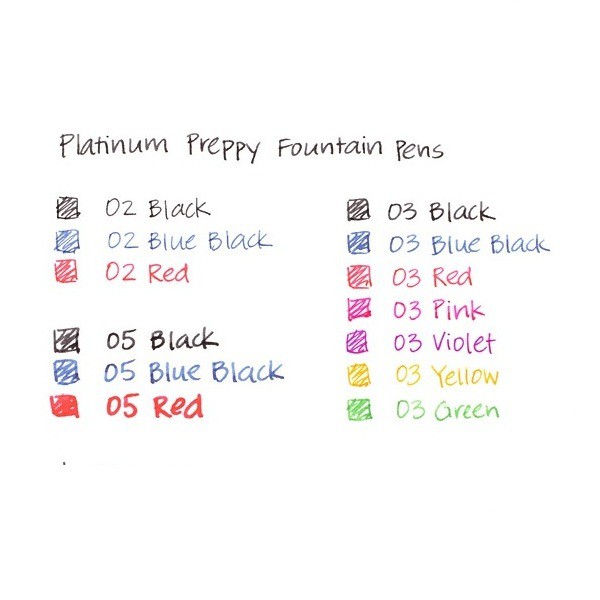 Platinum Preppy Fountain Pens
02 Black
02 Blue Black
02 Red
05 Black
05 Blue Black
05 Red
03 Black
03 Blue Black
03 Red
03 Pink
03 Violet
03 Yellow
03 Green